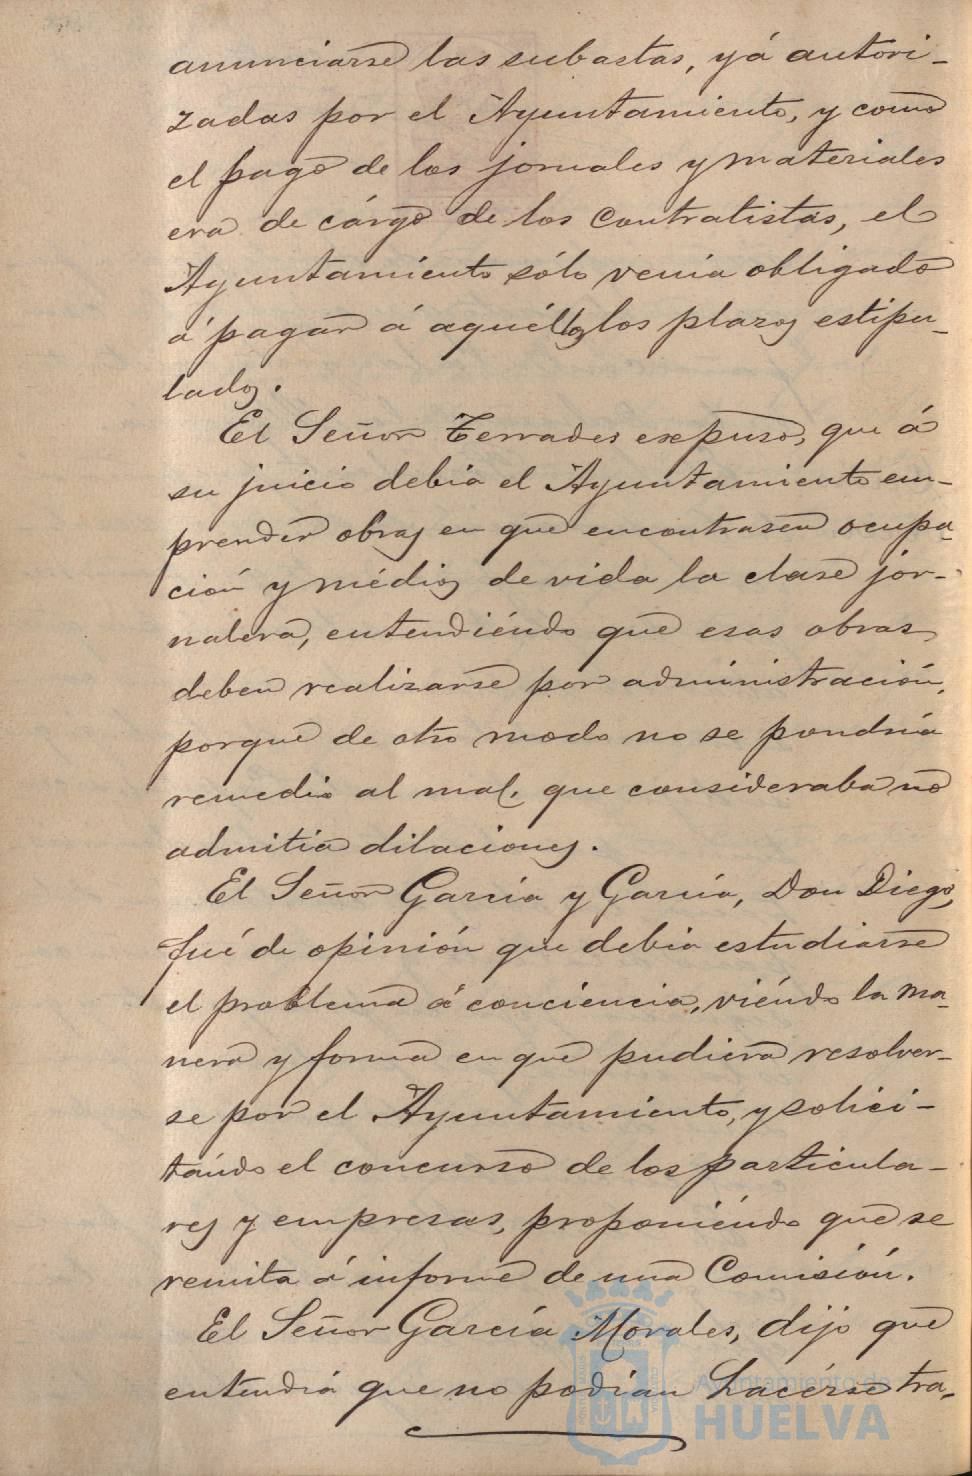 anunciarse las subastas, yá autori-
zadas por el Ayuntamiento, y como
el pago de los jornales y materiales
era de cárgo de los Contratistas, el
Ayuntamiento sólo venia obligado
á pagar á aquéllos los plazos estipu-
lados.
El Señor Terrades expuso, que á
su juicio debia el Ayuntamiento em-
prender obras en que encontrasen ocupa-
ción y médios de vida la clase jor-
nalera, entendiéndo que esas obras
deben realizarse por administración,
porque de otro modo no se pondría
remedio al mal, que consideraba no
admitia dilaciones.
El Señor García y García, Don Diego,
fué de opinión que debia estudiarse
el problema á conciencia, viéndo la ma-
nera y forma en que pudiera resolver-
se por el Ayuntamiento, y solici-
tándo el concurso de los particula-
res y empresas, proponiéndo que se
remita á informe de una Comisión.
El Señor García Morales, dijo que
entendia que no podian hacérse tra-
Ayuntamiento de
HUELVA